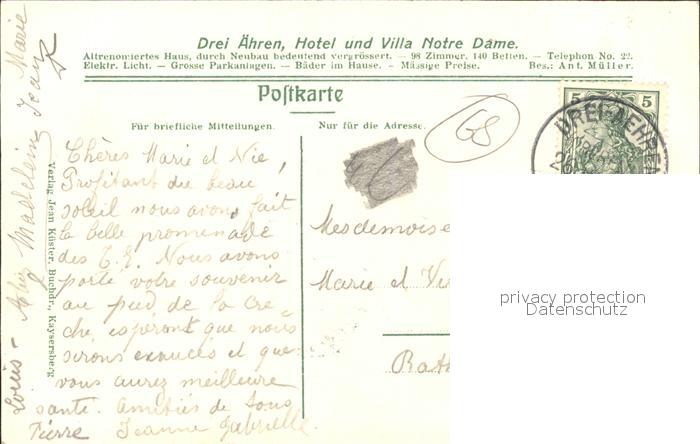 Drei Ähren, Hotel und Villa Notre Dame.
Altrenomiertes Haus, durch Neubau bedeutend vergrössert. — 98 Zimmer. 140 Betten. — Telephon No. 22.
Elektr. Licht. — Grosse Parkanlagen. — Bäder im Hause. — Mässige Preise. Bes.: Ant. Müller.
Postkarte
Für briefliche Mitteilungen.
Nur für die Adresse.
68
5 5
DREI-AEHREN
Chères Marie et Nie,
Profitant du beau
soleil nous avons fait
la belle promenade
des T. E. Nous avons
porté votre souvenir
au pied de la Crè-
che, espérant que nous
serons exaucés et que
vous aurez meilleure
santé. Amitiés de tous
Pierre Jeanne Gabrielle.
Louis - Madeleine Jean
Marie
Verlag Jean Küster, Buchdr., Kaysersberg
Mesdemoise
Marie et
privacy protection
Datenschutz